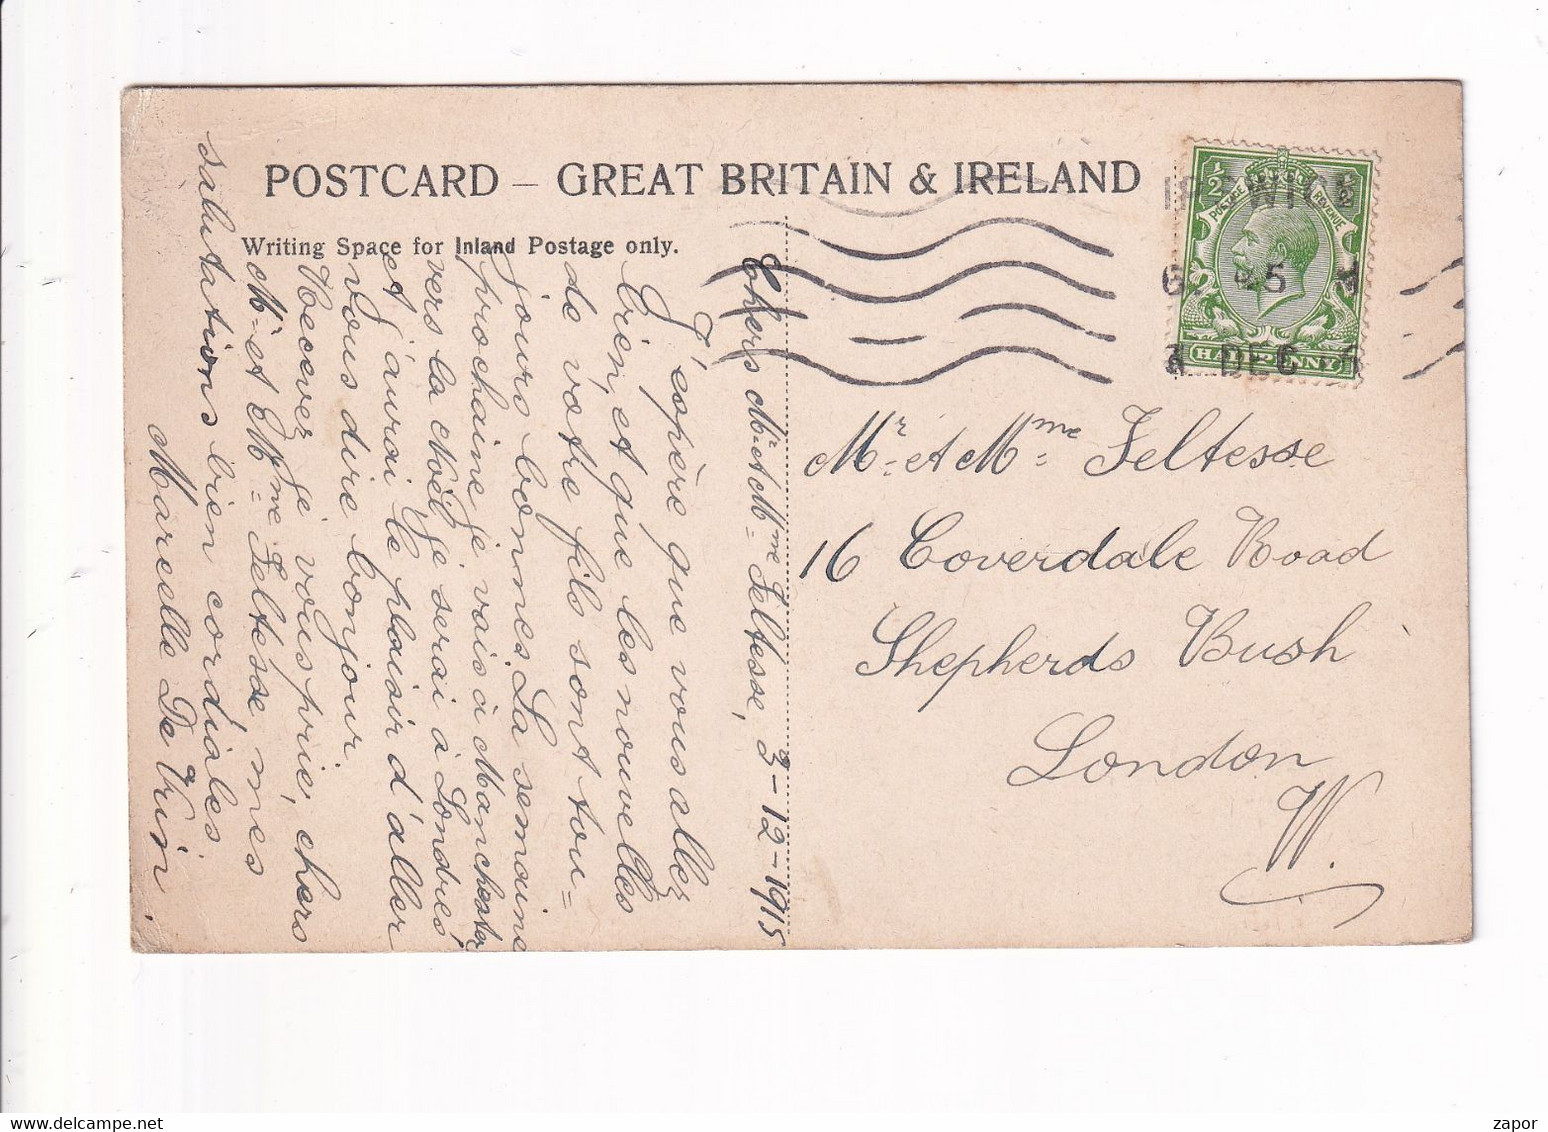 POSTCARD – GREAT BRITAIN & IRELAND
Writing Space for Inland Postage only.
Chers Mr et Mme Feltesse, 3-12-1915
J'espère que vous allez
bien, et que les nouvelles
de votre fils sont tou=
jours bonnes. La semaine
prochaine je vais à Manchester
vers la Noël je serai à Londres
et j'aurai le plaisir d'aller
vous dire bonjour.
Recevez je vous prie, chers
Mr et Mme Feltesse mes
salutations bien cordiales
Marcelle De Vrin.
Mr et Mme Feltesse
16 Coverdale Road
Shepherds Bush
London
W.
IPSWICH
45
DEC
½ ½
POSTAGE REVENUE
HALFPENNY
delcampe.net
zapor